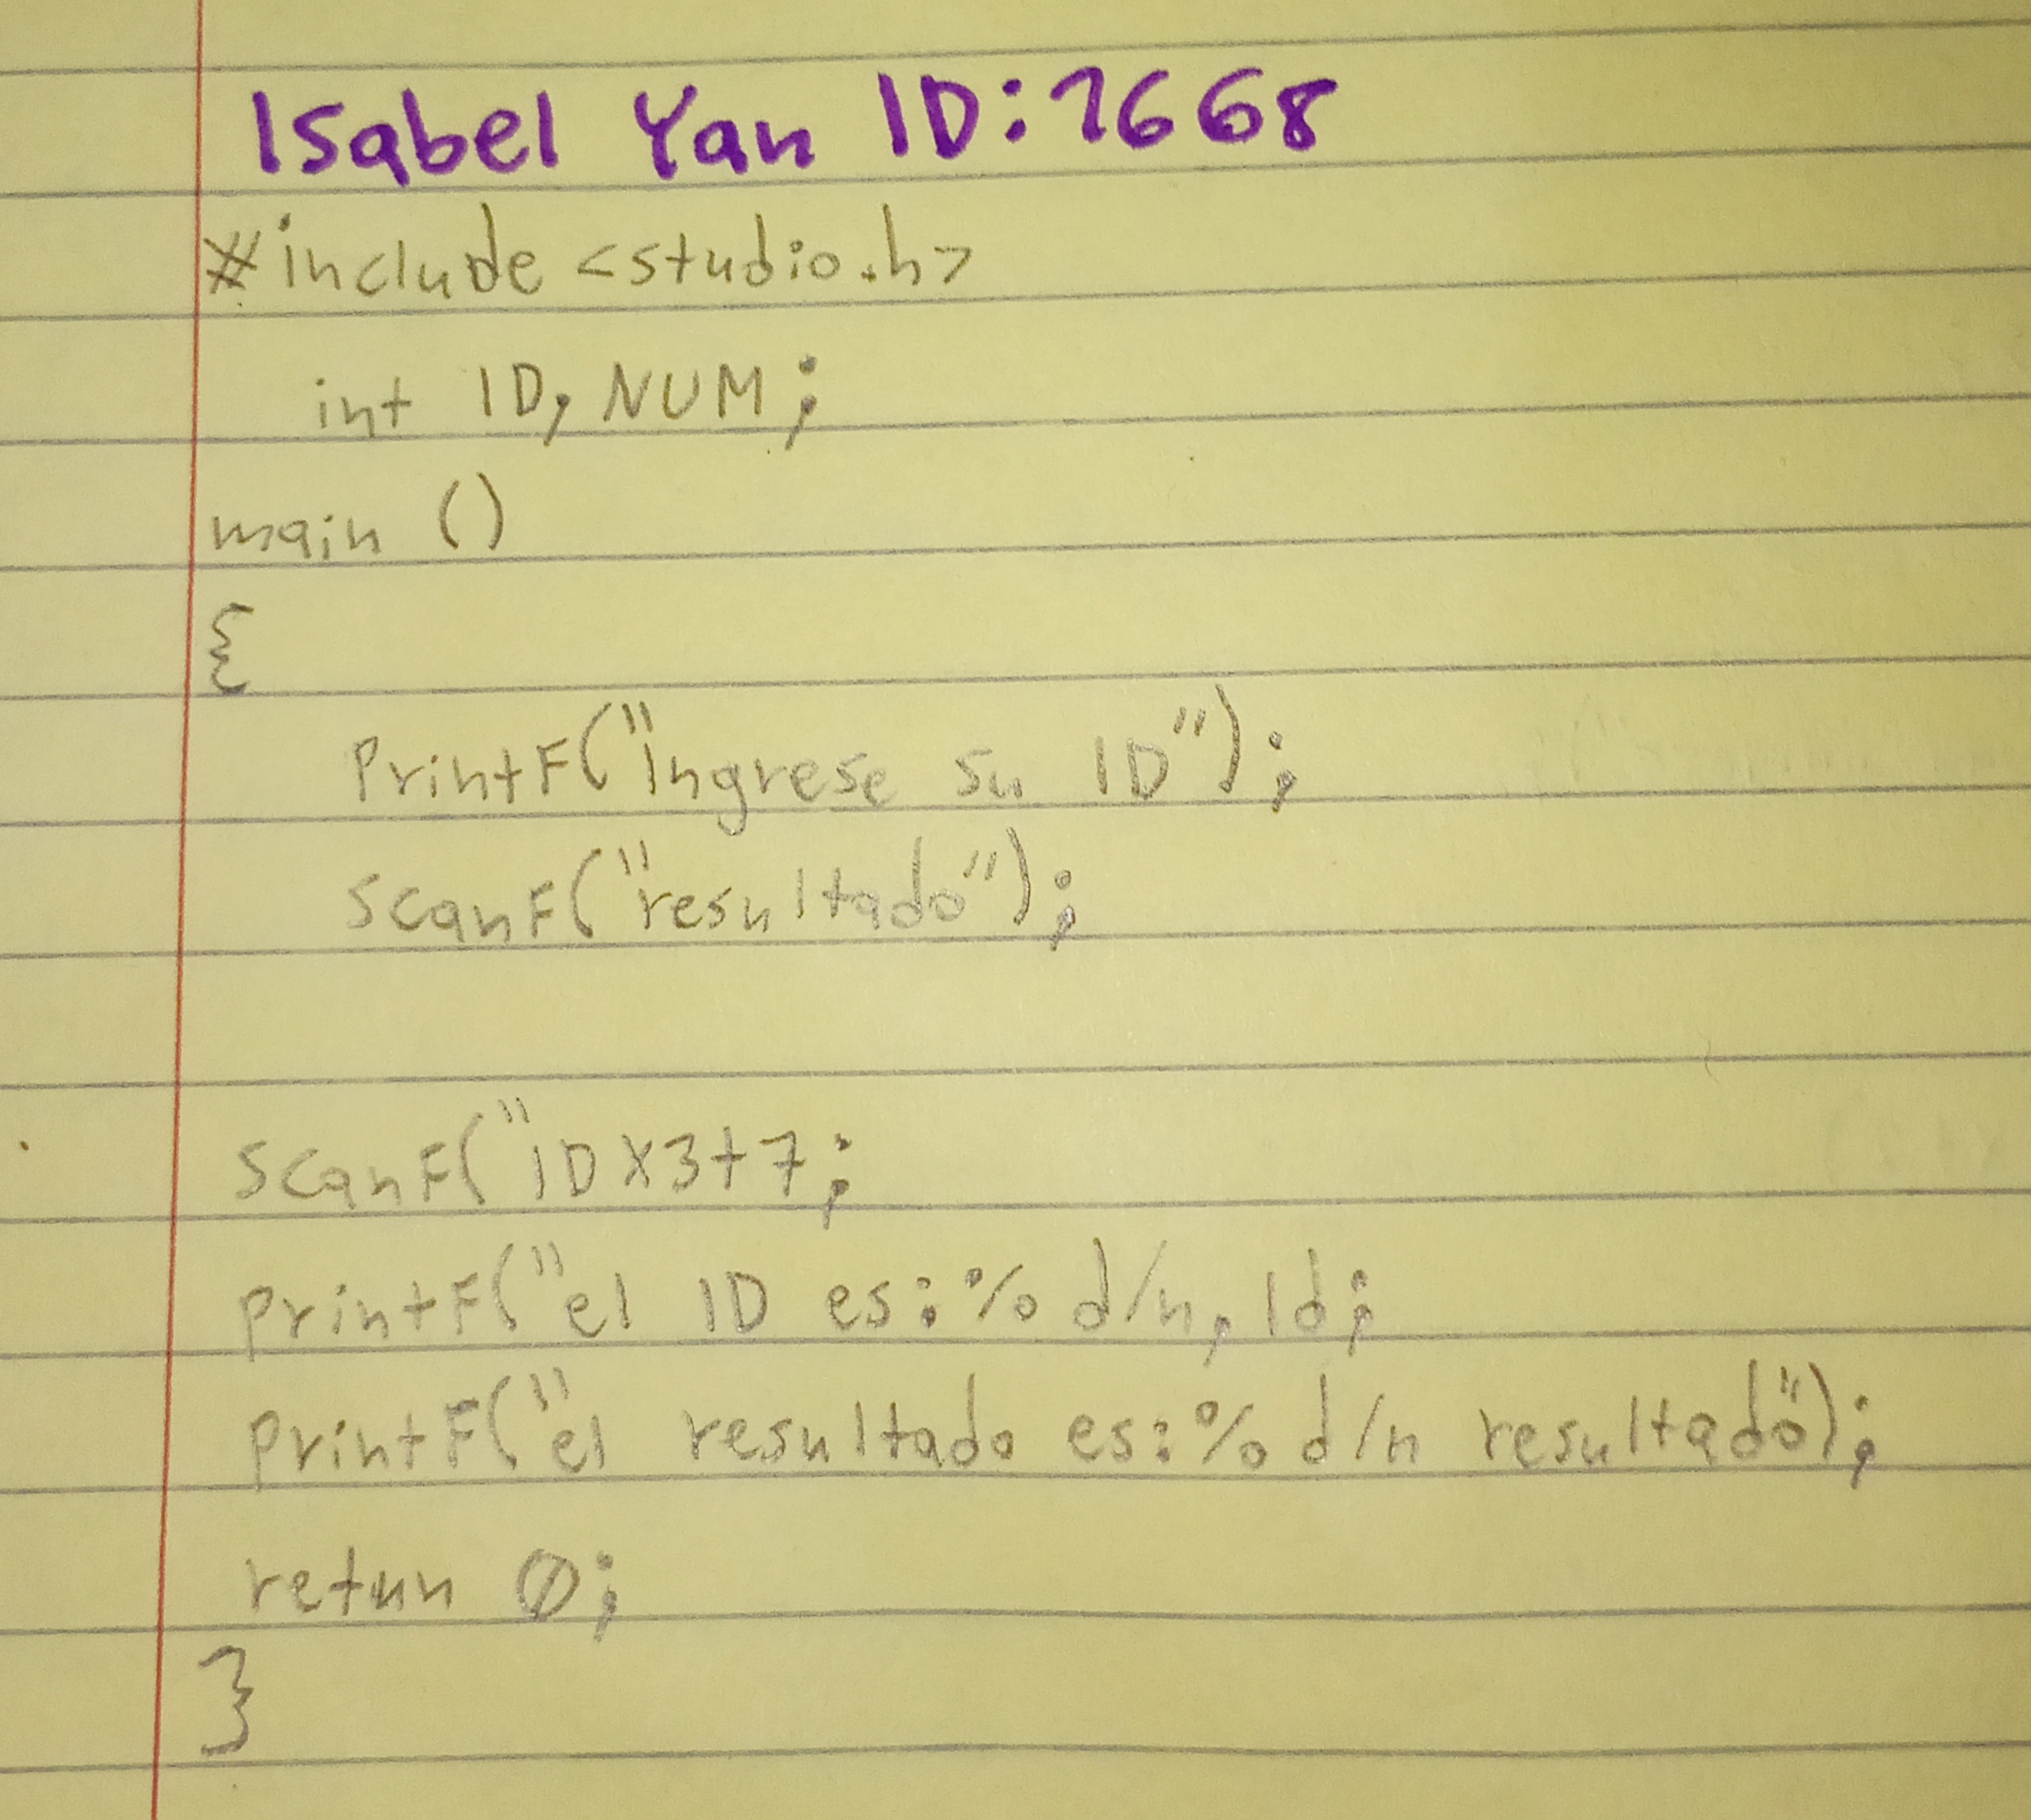 Isabel Yan ID:1668
#include <studio.h>
int ID, NUM;
main ()
{
PrintF("Ingrese su ID");
ScanF("resultado");
ScanF("IDx3+7;
PrintF("el ID es:%d/n, Id;
PrintF("el resultado es:%d/n resultado");
retun 0;
}